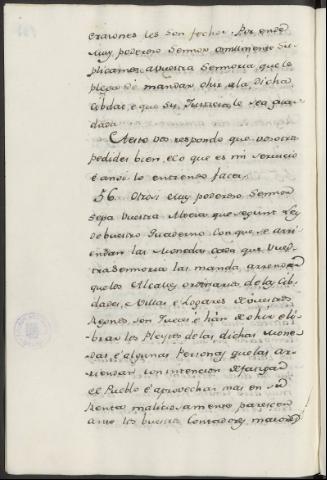 craciones les son fechos. Por ende
Muy poderoso Sennor omilmente Su-
plicamos a vuestra Sennoria que le
plega de mandar ohir a la dicha
Cibdat, e que Su Justicia le sea guar-
dada.
A esto vos respondo que vosotros
pedides bien, e lo que es mi servicio
e ansi lo entiendo facer.
56. Otrosi Muy poderoso Sennor
sepa vuestra Merced que segunt Ley
de vuestro Quaderno con que se arri-
endan las Monedas cada que vues-
tra Sennoria las manda arrendar
que los Alcalles ordinarios de las Cib-
dades, e Villas e Logares de vuestros
Regnos, son Jueces e han de ohir e li-
brar los Pleytos de las dichas Mone-
das, e algunas Personas que las ar-
riendan, con intencion de fatigar
el Pueblo e aprovechar mas en su
Renta maliciosamente parescen
ante los vuestros Contadores mayores